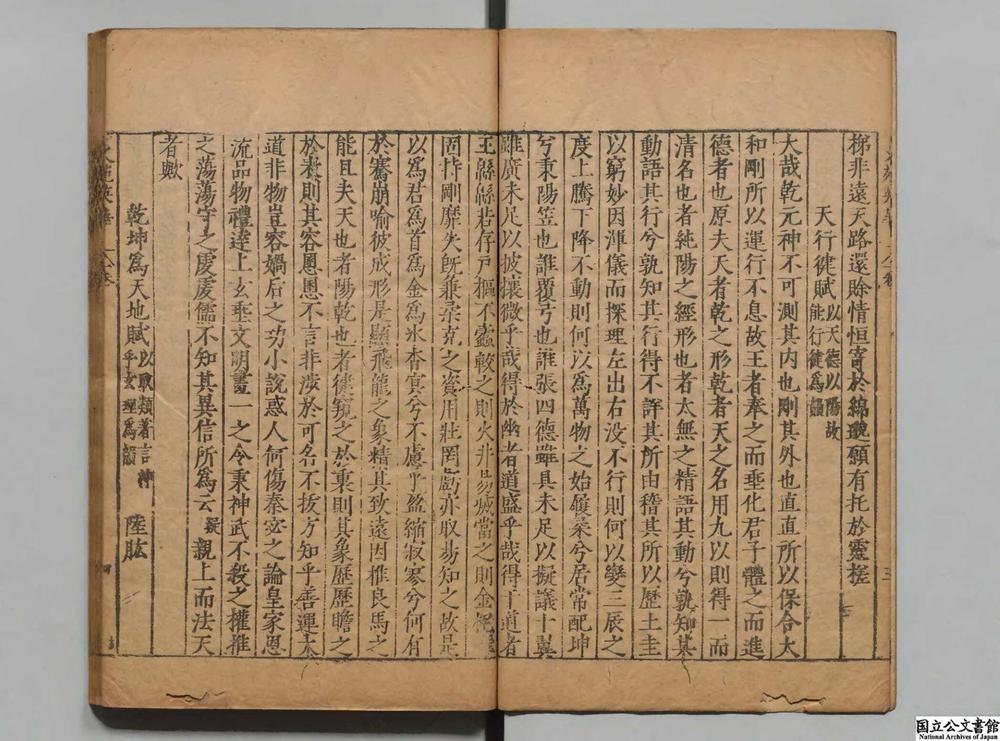 梯非遠天路還賒情恒寄於綿邈願有托於靈槎
天行健賦以天德以陽故能行健爲韻
大哉乾元神不可測其内也剛其外也直直所以保合太
和剛所以運行不息故王者奉之而垂化君子體之而進
德者也原夫天者乾之形乾者天之名用九以則得一而
清名也者純陽之經形也者太無之精語其動兮孰知其
動語其行兮孰知其行得不詳其所由稽其所以歷土圭
以窮妙因渾儀而探理左出右没不行則何以變三辰之
度上騰下降不動則何以爲萬物之始履柔兮居常配坤
兮秉陽笠也誰覆弓也誰張四德雖具未足以擬議十翼
雖廣未足以披攘微乎哉得於幽者道盛乎哉得于道者
王緜緜若存戸樞不蠹較之則火非易滅當之則金
固恃剛靡失既兼柔克之資用壯罔虧亦取易知之故是
以爲君爲首爲金爲氷杳冥兮不慮乎盈縮寂寥兮何有
於騫崩喻彼成形是顯飛龍之象精其致遠因推良馬之
能且夫天也者陽乾也者健窺之於東則其象歷歷瞻之
於素則其容恩恩不言非涉於可名不拔方知乎善運本
道非物豈容媧后之功小說惑人何傷秦宓之論皇家恩
流品物禮達上玄垂文明畫一之令秉神武不殺之權推
之蕩蕩守之慶慶儒不知其異信所爲云疑親上而法天
者歟
乾坤爲天地賦以取類著言神乎玄理爲韻 陸肱
三
四
国立公文書館
National Archives of Japan